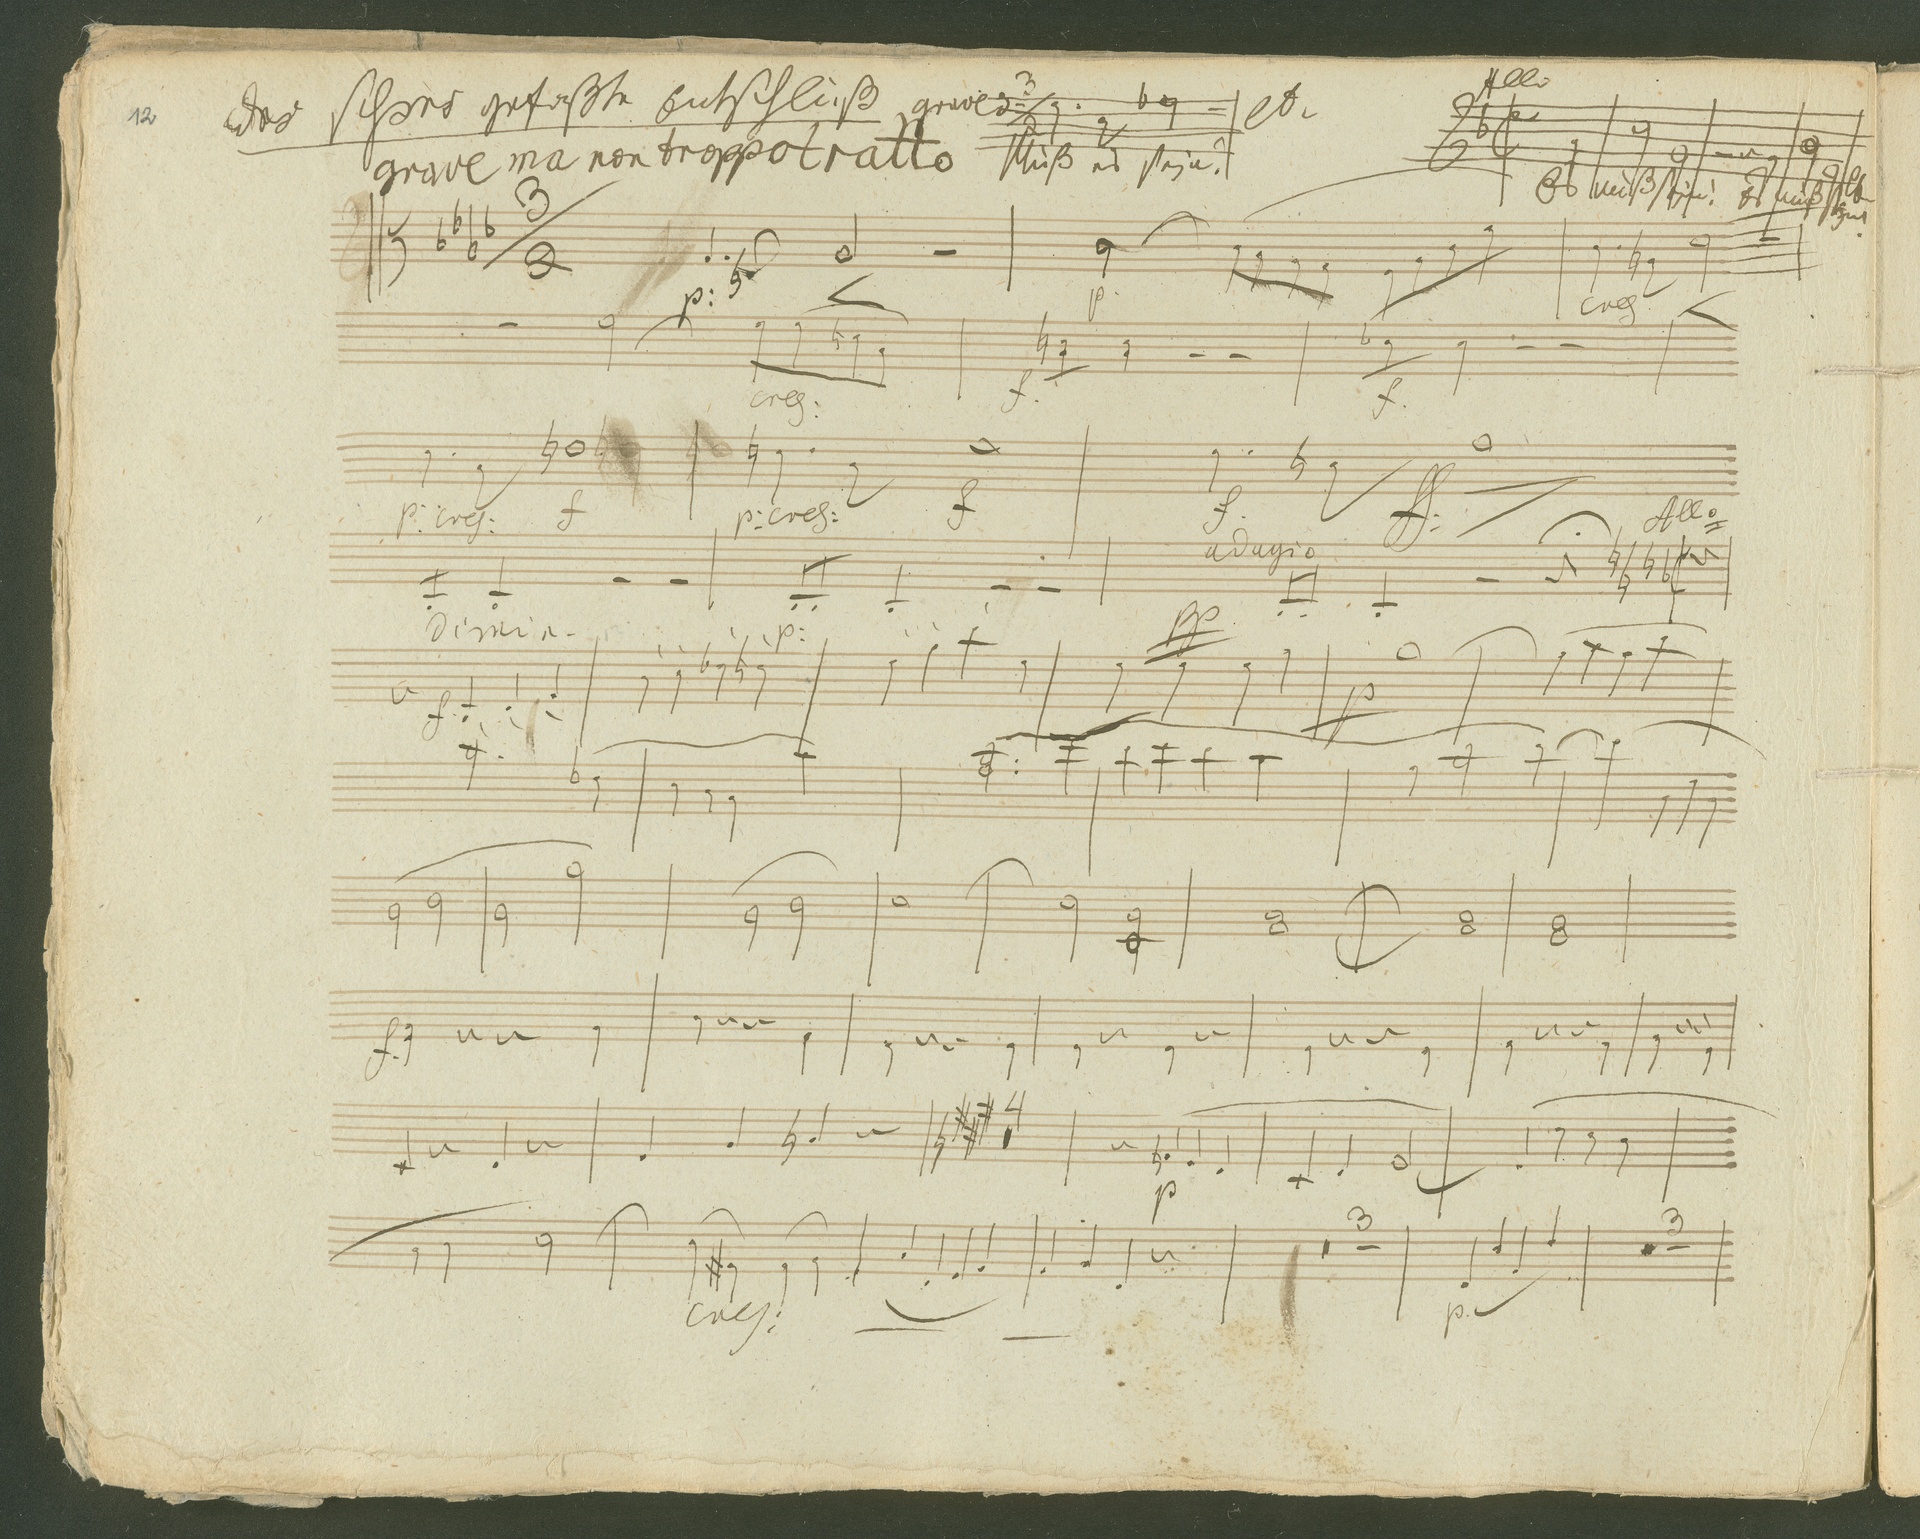 12
Der schwer gefaßte Entschluß grave 3/2 etc.
Allo
grave ma non troppo tratto Muß es sejn?
Es muß sejn! Es muß sejn!
3
2
p: p. cres
cres: f. f.
p: cres: f p: cres: f f. ff: Allo
adagio
dimin. p: pp
f p
f.
4
p
3 3
cres: p.